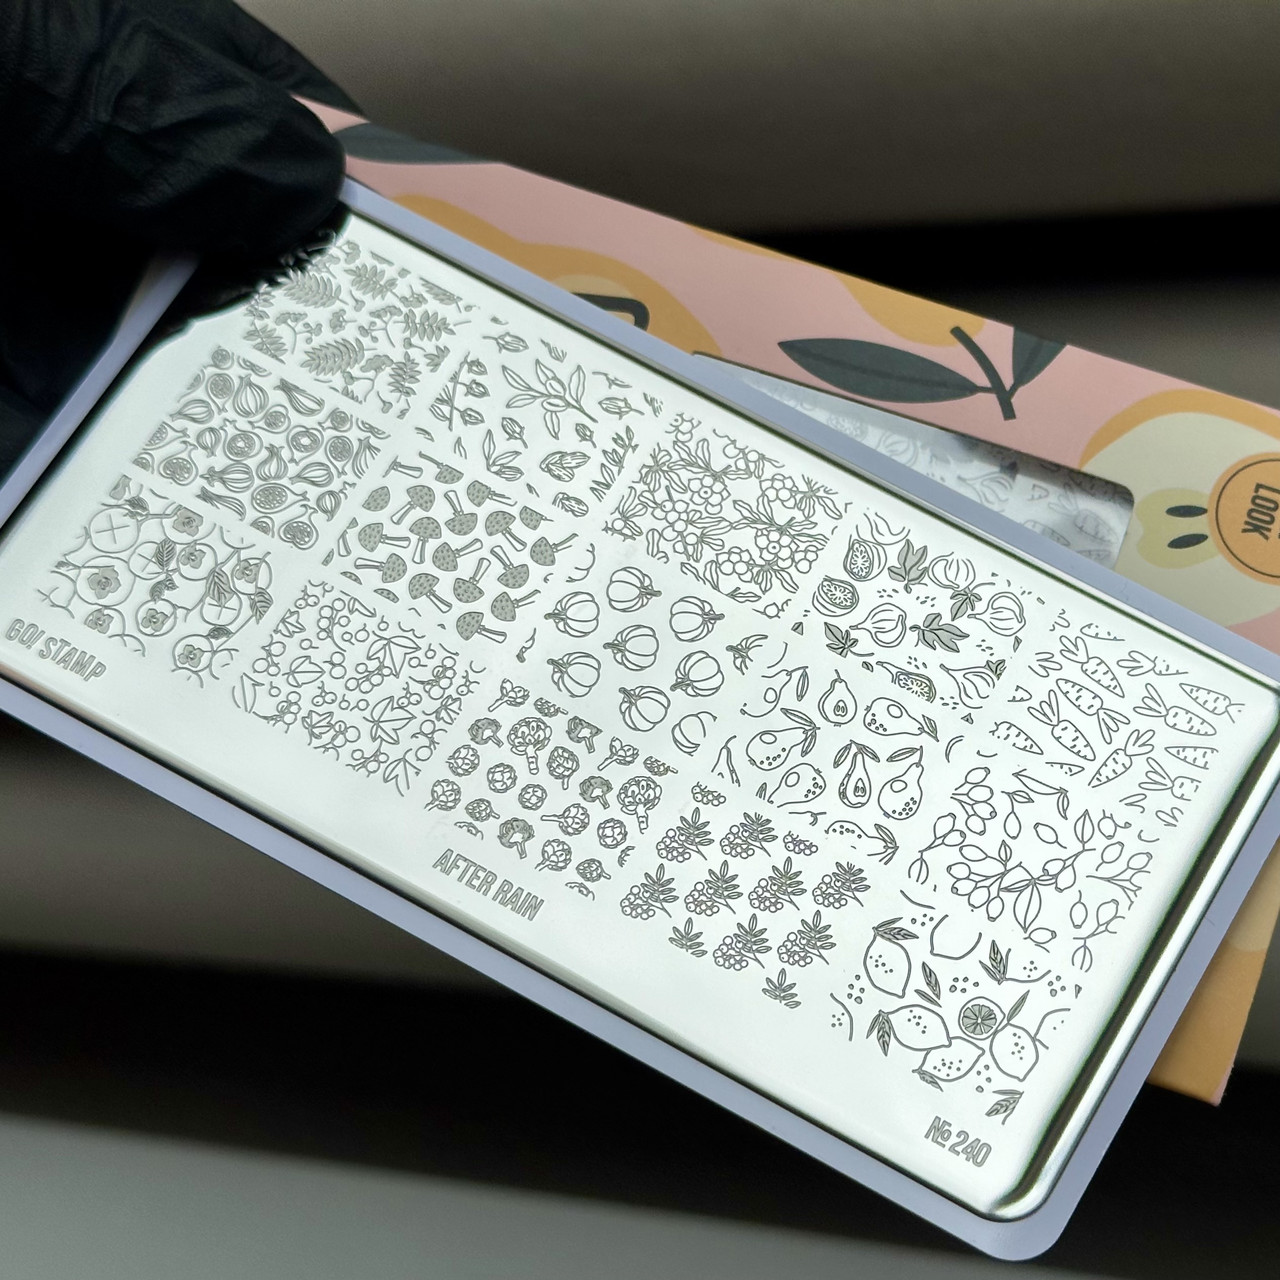 GO! STAMP
AFTER RAIN
№ 240
LOOK